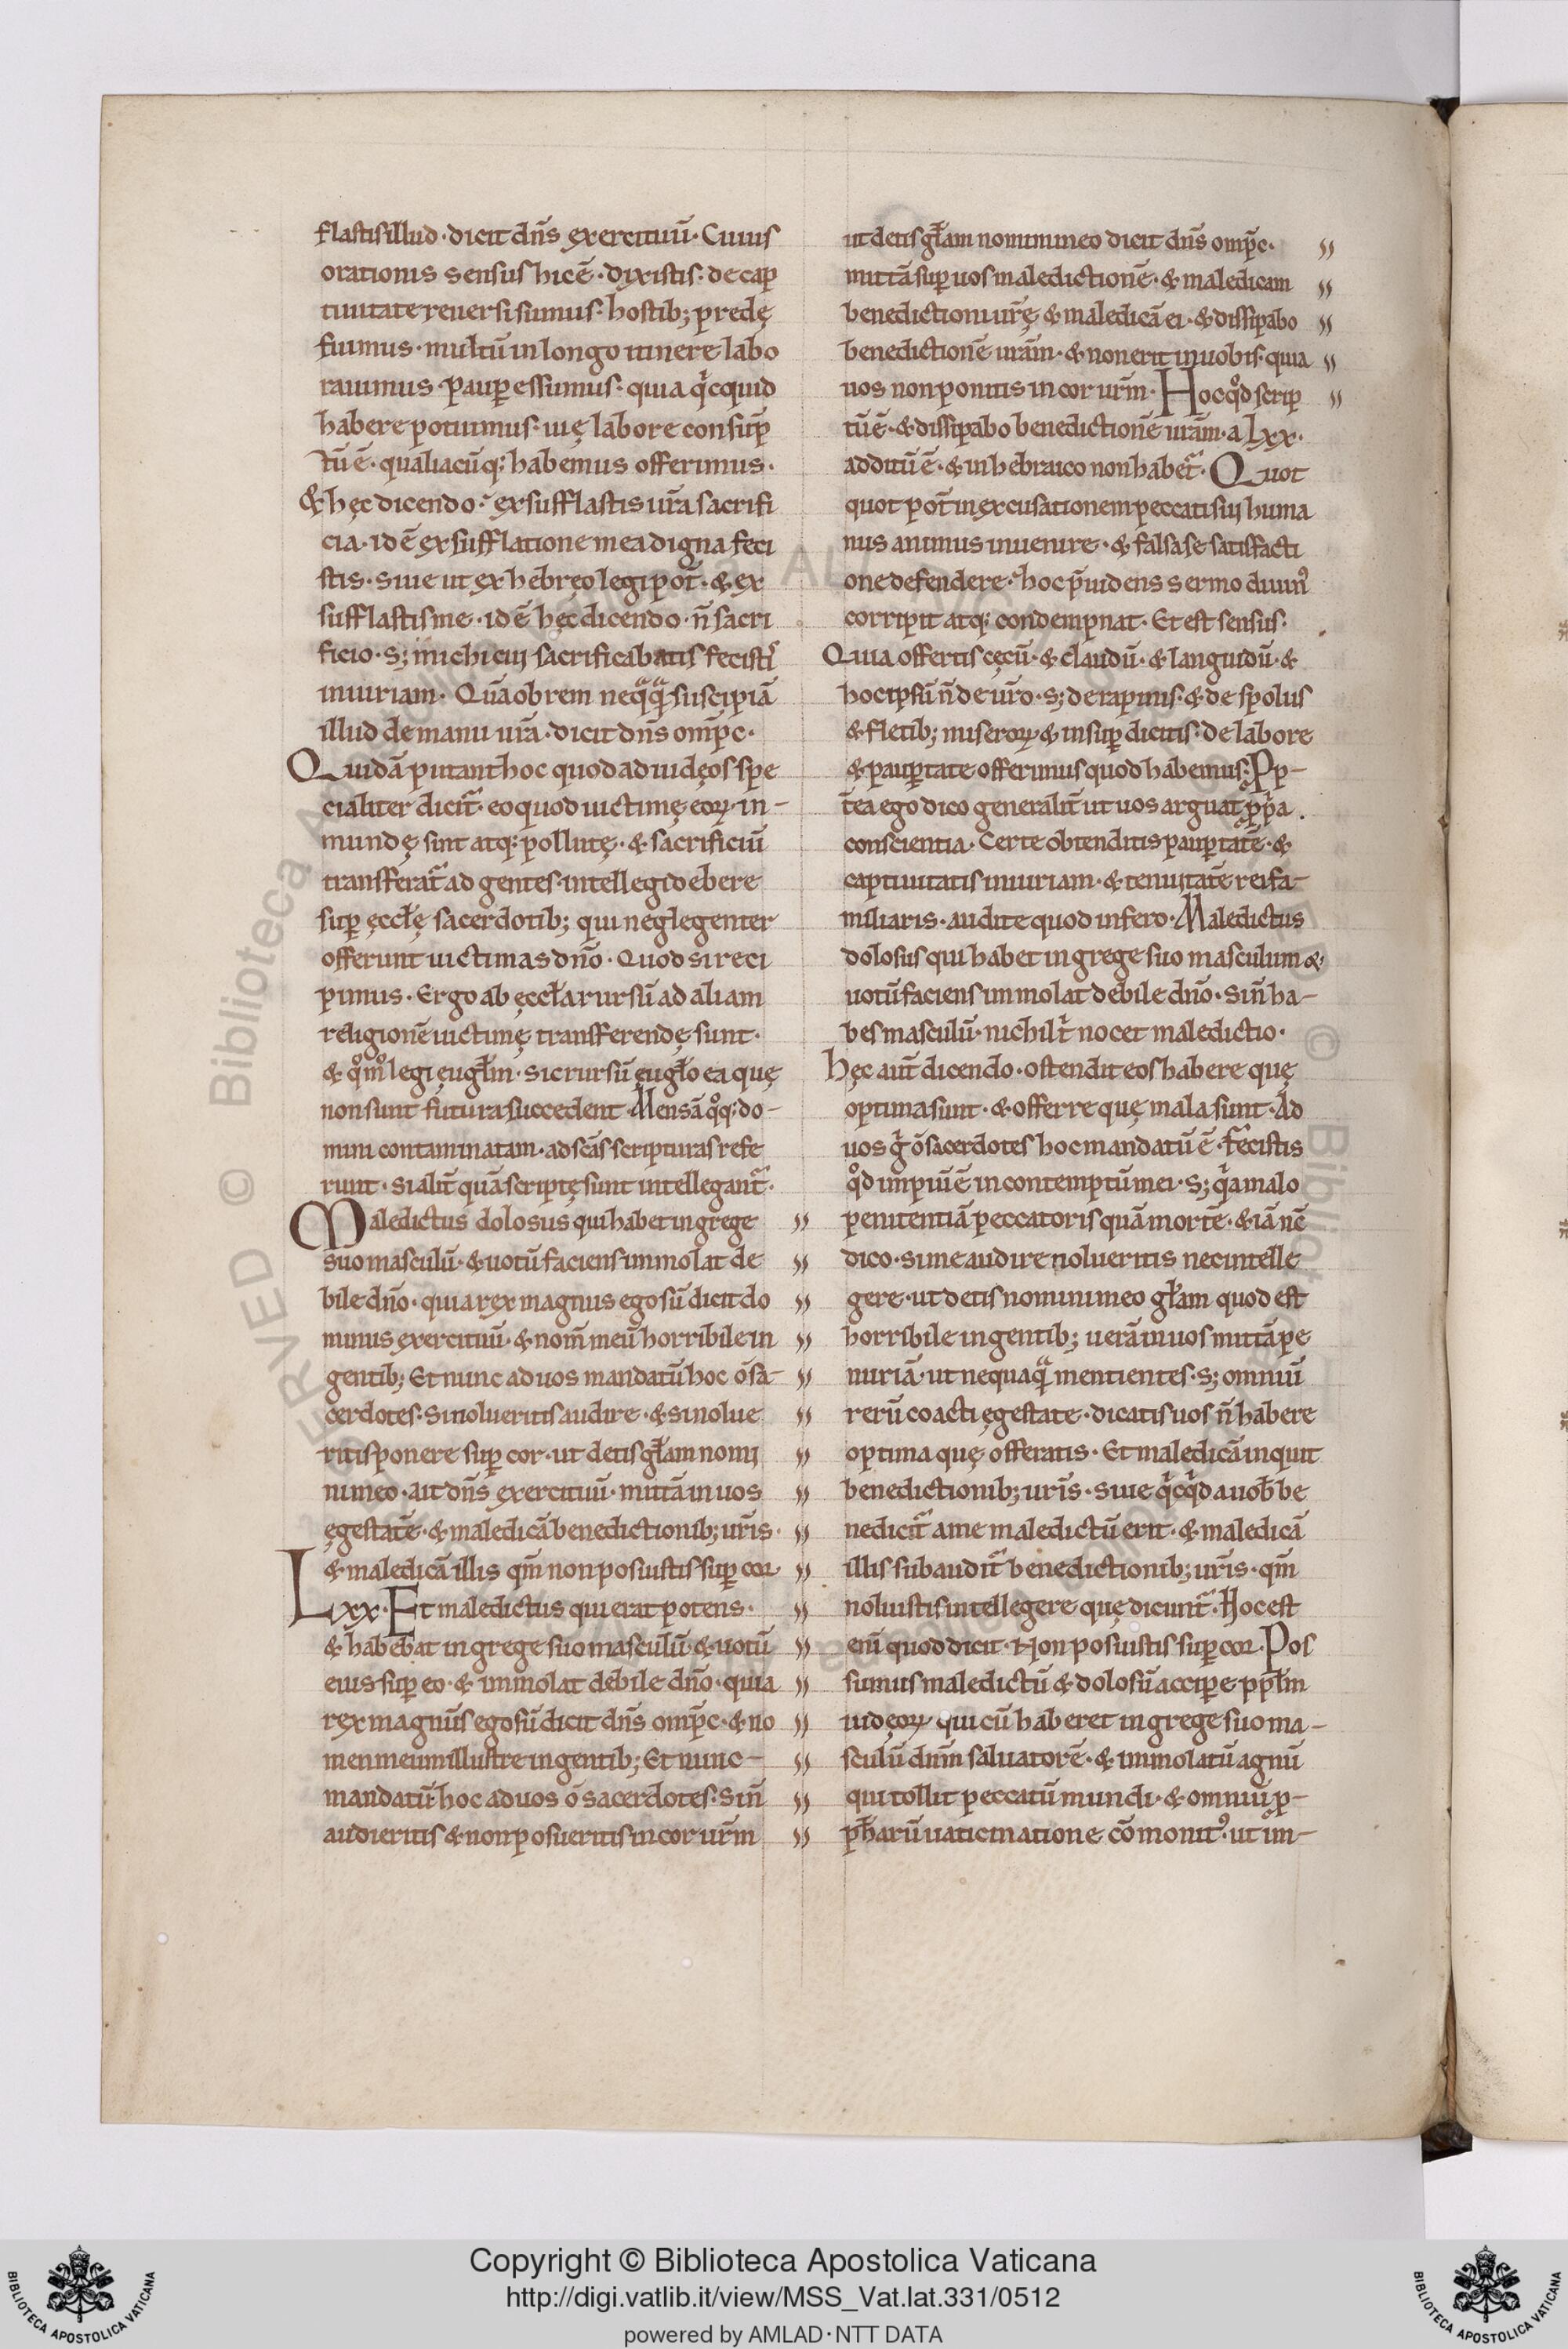 flastis illud · dicit dn̄s exercituū · Cuius
orationis sensus hic ē · dixistis · de cap
tiuitate reuersi sumus · hostib; predę
fuimus · multū in longo itinere labo
rauimus · paup̄es sumus · quia qͥcquid
habere potuimus · uię labore consūp
tū ē · qualiacūq; habemus offerimus ·
& hęc dicendo · exsufflastis ur̄a sacrifi
cia · id ē exsufflatione mea digna feci
stis · Siue ut ex hebręo legi pot̄ · & ex
sufflastis me · id ē hęc dicendo · n̄ sacri
ficio · s; michi cui sacrificabatis fecistis
iniuriam · Quāobrem neqᷓqᷓ suscipiā
illud de manu ur̄a · dicit dn̄s omp̄s ·
Quidā putant hoc quod ad iudęos spe
cialiter dicit᷑ · eo quod uictimę eoꝝ in-
mundę sint atq; pollutę · & sacrificiū
transferat᷑ ad gentes · intellegi debere
sup̄ ęccłę sacerdotib; qui neglegenter
offerunt uictimas dn̄o · Quod si reci
pimus · Ergo ab ęccła rursū ad aliam
religionē uictimę transferendę sunt ·
& qͦmͦ legi ęuglīm · sic rursū ęuglīo ea quę
non sunt futura succedent · Mensā qͦq; do-
mini contaminatam · ad scās scripturas refe
runt · si alit̄ quā scriptę sunt intellegant᷑ ·
Maledictus dolosus qui habet in grege
suo masculū · & uotū faciens immolat de
bile dn̄o · quia rex magnus ego sū dicit do
minus exercituū · & nom̄ meū horribile in
gentib; Et nunc ad uos mandatū hoc o sa-
cerdotes · Si nolueritis audire · & si nolue
ritis ponere sup̄ cor · ut detis głam nomi
ni meo · ait dn̄s exercituū · mittā in uos
ęgestatē · & maledicā benedictionib; ur̄is ·
& maledicā illis qm̄ non posuistis sup̄ cor
Lxx · Et maledictus qui erat potens ·
& habebat in grege suo masculū · & uotū
eius sup̄ eo · & immolat debile dn̄o · quia
rex magnus ego sū dicit dn̄s omp̄s · & no
men meum illustre in gentib; Et nunc -
mandatū hoc ad uos o sacerdotes · Si n̄
audieritis & non posueritis in cor ur̄m
ut detis głam nomini meo dicit dn̄s omp̄s ·
mittā sup̄ uos maledictionē · & maledicam
benedictioni ur̄ę & maledicā ei · & dissipabo
benedictionē ur̄am · & non erit in uobis · quia
uos non ponitis in cor ur̄m · Hoc qͦd scrip
tū ē · & dissipabo benedictionē ur̄am · a Lxx ·
additū ē · & in hebraico non habet᷑ · Quot
quot pot̄ in excusationem peccati sui huma
nus animus inuenire · & falsa se satisfacti
one defendere · hoc p̄uidens sermo diuin᾿
corripit atq; condempnat · Et est sensus ·
Quia offertis cęcū · & claudū · & languidū · &
hoc ipsū n̄ de ur̄o · s; de rapinis · & de spoliis
& fletib; miseroꝝ & insup̄ dicitis · de labore
& paup̄tate offerimus quod habemus · Pp̄-
tea ego dico generalit̄ ut uos arguat p̱pͥa
conscientia · Certe obtenditis paup̄tatē · &
captiuitatis iniuriam · & tenuitatē rei fa-
miliaris · audite quod infero · Maledictus
dolosus qui habet in grege suo masculum &
uotū faciens immolat debile dn̄o · Si n̄ ha-
bes masculū · nichil tͥ nocet maledictio ·
Hęc aut̄ dicendo · ostendit eos habere quę
optima sunt · & offerre quę mala sunt · Ad
uos gͥ o sacerdotes hoc mandatū ē · fecistis
qͦd impiū ē in contemptū mei · s; qͥa malo
penitentiā peccatoris quā mortē · & iā nc̄
dico · si me audire nolueritis nec intelle
gere · ut detis nomini meo głam quod est
horribile in gentib; uerā in uos mittā pe
nuriā · ut nequaqᷓ mentientes · s; omniū
rerū coacti ęgestate · dicatis uos n̄ habere
optima quę offeratis · Et maledicā inquit
benedictionib; ur̄is · Siue qͥcqͥd a uob̄ be
nedicit᷑ a me maledictū erit · & maledicā
illis subaudit᷑ benedictionib; ur̄is · qm̄
noluistis intellegere quę dicunt᷑ · Hoc est
eni quod dicit · Non posuistis sup̄ cor · Pos
sumus maledictū & dolosū accip̄e pp̄lm
iudęoꝝ qui cū haberet in grege suo ma-
sculū dnm̄ saluatorē · & immolatū agnū
qui tollit peccatū mundi · & omniū p̱-
ph̄arū uaticinatione cō monit᾿ · ut im-
Copyright © Biblioteca Apostolica Vaticana
http://digi.vatlib.it/view/MSS_Vat.lat.331/0512
powered by AMLAD·NTT DATA
BIBLIOTECA APOSTOLICA VATICANA
BIBLIOTECA APOSTOLICA VATICANA